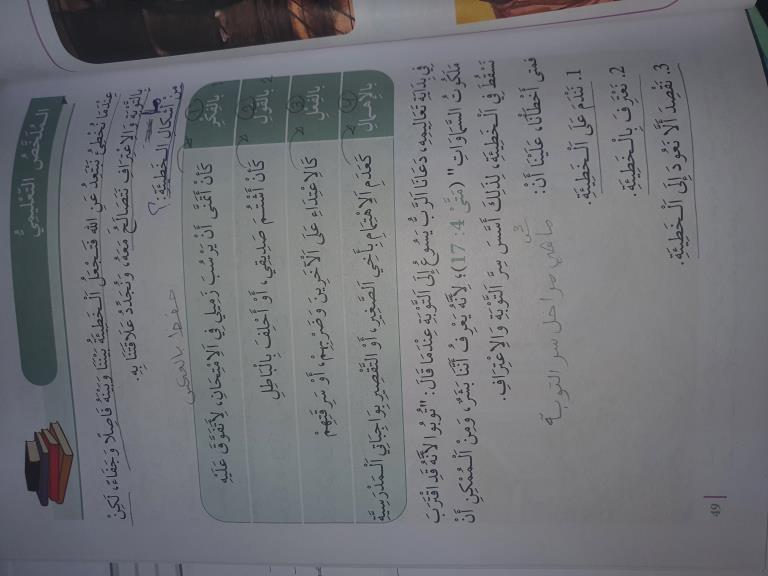 المُلَخَّصُ التَّعْلِيمِيُّ
عِنْدَمَا نُخْطِئُ نَبْتَعِدُ عَنِ اللهِ فَتَجْعَلُ الْخَطِيئَةُ بَيْنَنَا وَبَيْنَهُ فَاصِلًا وَجَفَاءً، لَكِنْ
بِالتَّوْبَةِ وَالِاعْتِرَافِ نَتَصَالَحُ مَعَهُ، وَنُجَدِّدُ عَلَاقَتَنَا بِهِ.
ما
مِنْ أَشْكَالِ الْخَطِيئَةِ: ؟
حفظ بالعكس
1 بِالْفِكْرِ
كَأَنْ أَتَمَنَّى أَنْ يَرْسُبَ زَمِيلِي فِي الِامْتِحَانِ، لِأَتَفَوَّقَ عَلَيْهِ
2 بِالْقَوْلِ
كَأَنْ أَشْتُمَ صَدِيقِي، أَوْ أَحْلِفَ بِالْبَاطِلِ
3 بِالْفِعْلِ
كَالِاعْتِدَاءِ عَلَى الْآخَرِينَ وَضَرْبِهِمْ، أَوْ سَرِقَتِهِمْ
4 بِالْإِهْمَالِ
كَعَدَمِ الِاهْتِمَامِ بِأَخِي الصَّغِيرِ، أَوِ التَّقْصِيرِ بِوَاجِبَاتِي الْمَدْرَسِيَّةِ
فِي بِدَايَةِ تَعَالِيمِهِ، دَعَانَا الرَّبُّ يَسُوعُ إِلَى التَّوْبَةِ عِنْدَمَا قَالَ: "تُوبُوا لِأَنَّهُ قَدِ اقْتَرَبَ
مَلَكُوتُ السَّمَاوَاتِ" (مَتَّى 4: 17)؛ لِأَنَّهُ يَعْرِفُ أَنَّنَا بَشَرٌ، وَمِنَ الْمُمْكِنِ أَنْ
نَسْقُطَ فِي الْخَطِيئَةِ، لِذَلِكَ أَسَّسَ سِرَّ التَّوْبَةِ وَالِاعْتِرَافِ.
فَمَتَى أَخْطَأْنَا، عَلَيْنَا أَنْ:
ما هي مراحل سر التوبة
1. نَنْدَمَ عَلَى الْخَطِيئَةِ.
2. نَعْتَرِفَ بِالْخَطِيئَةِ.
3. نَقْصِدَ أَلَّا نَعُودَ إِلَى الْخَطِيئَةِ.
49